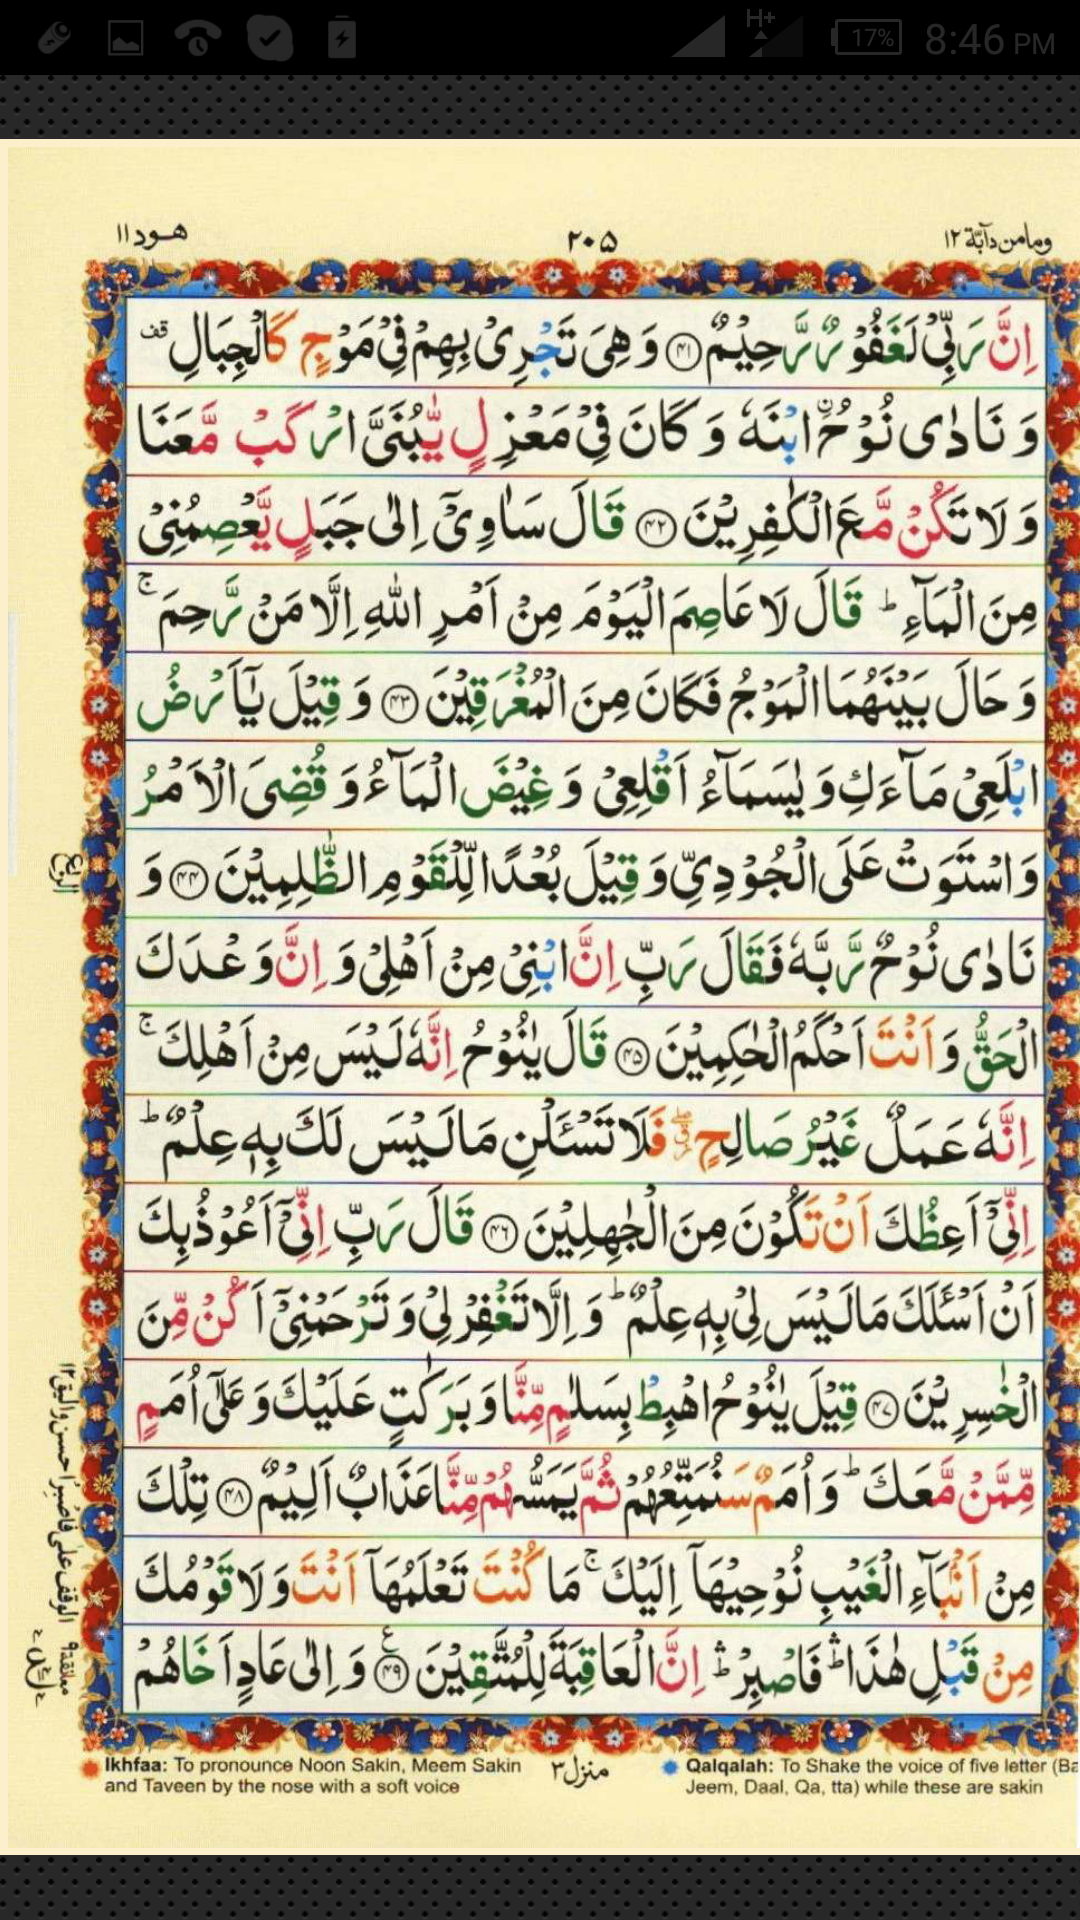 H+
17%
8:46 PM
ومامن دآبة ١٢
٢٠٥
هود ١١
اِنَّ رَبِّیْ لَغَفُوْرٌ رَّحِیْمٌ ﴿۴۱﴾ وَ هِیَ تَجْرِیْ بِهِمْ فِیْ مَوْجٍ كَالْجِبَالِ قف
وَ نَادٰی نُوْحُ ِ۟ابْنَهٗ وَ كَانَ فِیْ مَعْزِلٍ یّٰبُنَیَّ ارْكَبْ مَّعَنَا
وَ لَا تَكُنْ مَّعَ الْكٰفِرِیْنَ ﴿۴۲﴾ قَالَ سَاٰوِیْۤ اِلٰی جَبَلٍ یَّعْصِمُنِیْ
مِنَ الْمَآءِ ؕ قَالَ لَا عَاصِمَ الْیَوْمَ مِنْ اَمْرِ اللّٰهِ اِلَّا مَنْ رَّحِمَ ۚ
وَ حَالَ بَیْنَهُمَا الْمَوْجُ فَكَانَ مِنَ الْمُغْرَقِیْنَ ﴿۴۳﴾ وَ قِیْلَ یٰۤاَرْضُ
ابْلَعِیْ مَآءَكِ وَ یٰسَمَآءُ اَقْلِعِیْ وَ غِیْضَ الْمَآءُ وَ قُضِیَ الْاَمْرُ
وَ اسْتَوَتْ عَلَی الْجُوْدِیِّ وَ قِیْلَ بُعْدًا لِّلْقَوْمِ الظّٰلِمِیْنَ ﴿۴۴﴾ وَ
نَادٰی نُوْحٌ رَّبَّهٗ فَقَالَ رَبِّ اِنَّ ابْنِیْ مِنْ اَهْلِیْ وَ اِنَّ وَعْدَكَ
الْحَقُّ وَ اَنْتَ اَحْكَمُ الْحٰكِمِیْنَ ﴿۴۵﴾ قَالَ یٰنُوْحُ اِنَّهٗ لَیْسَ مِنْ اَهْلِكَ ۚ
اِنَّهٗ عَمَلٌ غَیْرُ صَالِحٍ فَلَا تَسْـَٔلْنِ مَا لَیْسَ لَكَ بِهٖ عِلْمٌ ؕ
اِنِّیْۤ اَعِظُكَ اَنْ تَكُوْنَ مِنَ الْجٰهِلِیْنَ ﴿۴۶﴾ قَالَ رَبِّ اِنِّیْۤ اَعُوْذُ بِكَ
اَنْ اَسْـَٔلَكَ مَا لَیْسَ لِیْ بِهٖ عِلْمٌ ؕ وَ اِلَّا تَغْفِرْ لِیْ وَ تَرْحَمْنِیْۤ اَكُنْ مِّنَ
الْخٰسِرِیْنَ ﴿۴۷﴾ قِیْلَ یٰنُوْحُ اهْبِطْ بِسَلٰمٍ مِّنَّا وَ بَرَكٰتٍ عَلَیْكَ وَ عَلٰۤی اُمَمٍ
مِّمَّنْ مَّعَكَ ؕ وَ اُمَمٌ سَنُمَتِّعُهُمْ ثُمَّ یَمَسُّهُمْ مِّنَّا عَذَابٌ اَلِیْمٌ ﴿۴۸﴾ تِلْكَ
مِنْ اَنْۢبَآءِ الْغَیْبِ نُوْحِیْهَاۤ اِلَیْكَ ۚ مَا كُنْتَ تَعْلَمُهَاۤ اَنْتَ وَ لَا قَوْمُكَ
مِنْ قَبْلِ هٰذَا ۛؕ فَاصْبِرْ ۛؕ اِنَّ الْعَاقِبَةَ لِلْمُتَّقِیْنَ ﴿۴۹﴾ ع وَ اِلٰی عَادٍ اَخَاهُمْ
الربع
معانقة ٩ الوقف على فاصبر احسن واليق ١٢
منزل ٣
Ikhfaa: To pronounce Noon Sakin, Meem Sakin
and Taveen by the nose with a soft voice
Qalqalah: To Shake the voice of five letter (Ba
Jeem, Daal, Qa, tta) while these are sakin